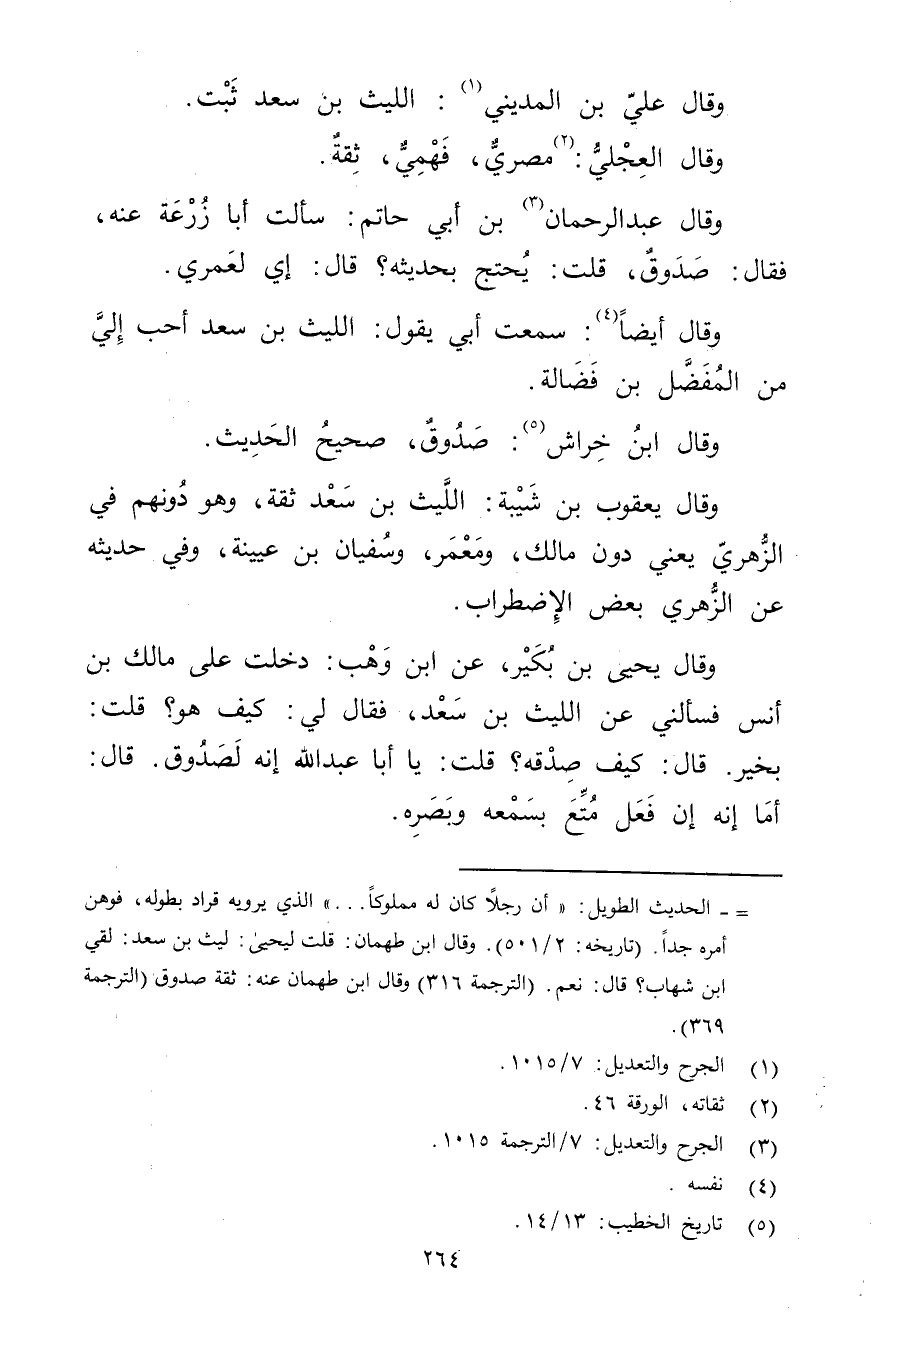 وقال عليّ بن المديني(١) : الليث بن سعد ثَبْت.
وقال العِجْليُّ:(٢) مصريٌّ، فَهْمِيٌّ، ثِقةٌ.
وقال عبدالرحمان(٣) بن أبي حاتم: سألت أبا زُرْعَة عنه،
فقال: صَدَوقٌ، قلت: يُحتج بحديثه؟ قال: إي لعَمري.
وقال أيضاً(٤): سمعت أبي يقول: الليث بن سعد أحب إليَّ
من المُفَضَّل بن فَضَالة.
وقال ابنُ خِراش(٥): صَدُوقٌ، صحيحُ الحَدِيث.
وقال يعقوب بن شَيْبة: اللَّيث بن سَعْد ثقة، وهو دُونهم في
الزُّهريّ يعني دون مالك، ومَعْمَر، وسُفيان بن عيينة، وفي حديثه
عن الزُّهري بعض الإضطراب.
وقال يحيى بن بُكَيْر، عن ابن وَهْب: دخلت على مالك بن
أنس فسألني عن الليث بن سَعْد، فقال لي: كيف هو؟ قلت:
بخير. قال: كيف صِدْقه؟ قلت: يا أبا عبدالله إنه لَصَدُوق. قال:
أمَا إنه إن فَعَل مُتِّعَ بسَمْعه وبَصَرِه.
= ـ الحديث الطويل: « أن رجلًا كان له مملوكاً. . .» الذي يرويه قراد بطوله، فوهن
أمره جداً. (تاريخه: ٥٠١/٢). وقال ابن طهمان: قلت ليحيىٰ: ليث بن سعد: لقي
ابن شهاب؟ قال: نعم. (الترجمة ٣١٦) وقال ابن طهمان عنه: ثقة صدوق (الترجمة
٣٦٩).
(١) الجرح والتعديل: ١٠١٥/٧.
(٢) ثقاته، الورقة ٤٦.
(٣) الجرح والتعديل: ٧/الترجمة ١٠١٥.
(٤) نفسه .
(٥) تاريخ الخطيب: ١٤/١٣.
٢٦٤